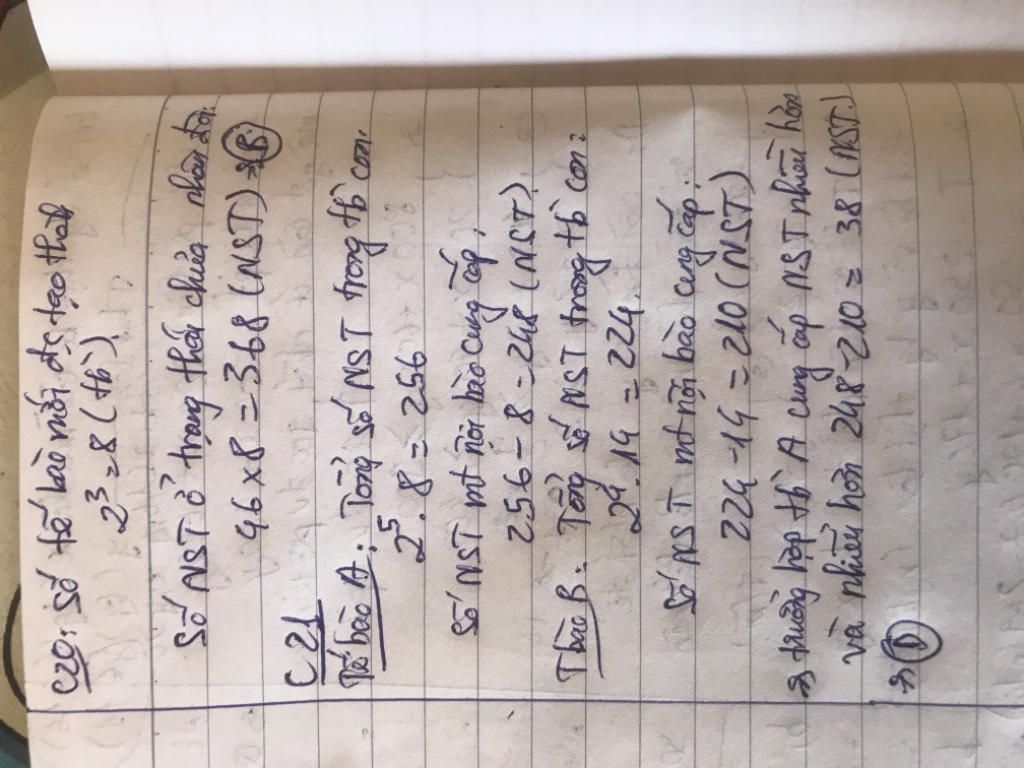 C20: Số tế bào nối đc tạo thành
2³ = 8 (tb)
Số NST ở trạng thái chưa nhân đôi:
46 x 8 = 368 (NST) => B.
C21
Tế bào A: Tổng số NST trong tb con:
2⁵. 8 = 256
Số NST mt nội bào cung cấp:
256 - 8 = 248 (NST)
T bào B: Tổng số NST trong tb con:
2⁴. 14 = 224
Số NST mt nội bào cung cấp:
224 - 14 = 210 (NST)
=> trường hợp tb A cung cấp NST nhiều hơn
và nhiều hơn 248 - 210 = 38 (NST)
=> D